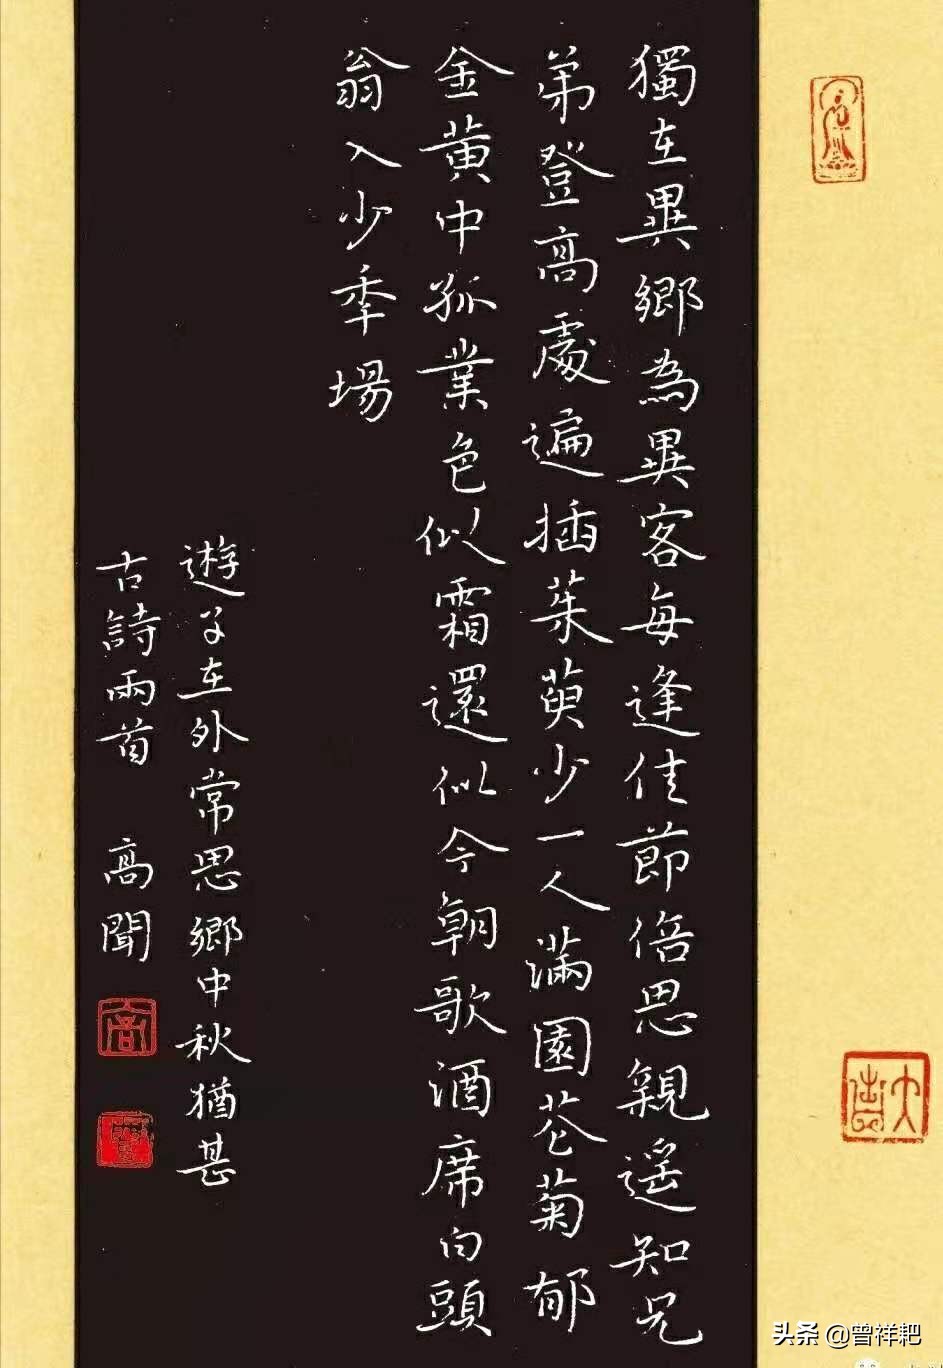 獨在異鄉為異客每逢佳節倍思親遥知兄
弟登高處遍插茱萸少一人滿園花菊郁
金黄中孤業色似霜還似今朝歌酒席白頭
翁入少秊場
遊子在外常思鄉中秋猶甚
古詩兩首 高聞
头条 @曾祥耙